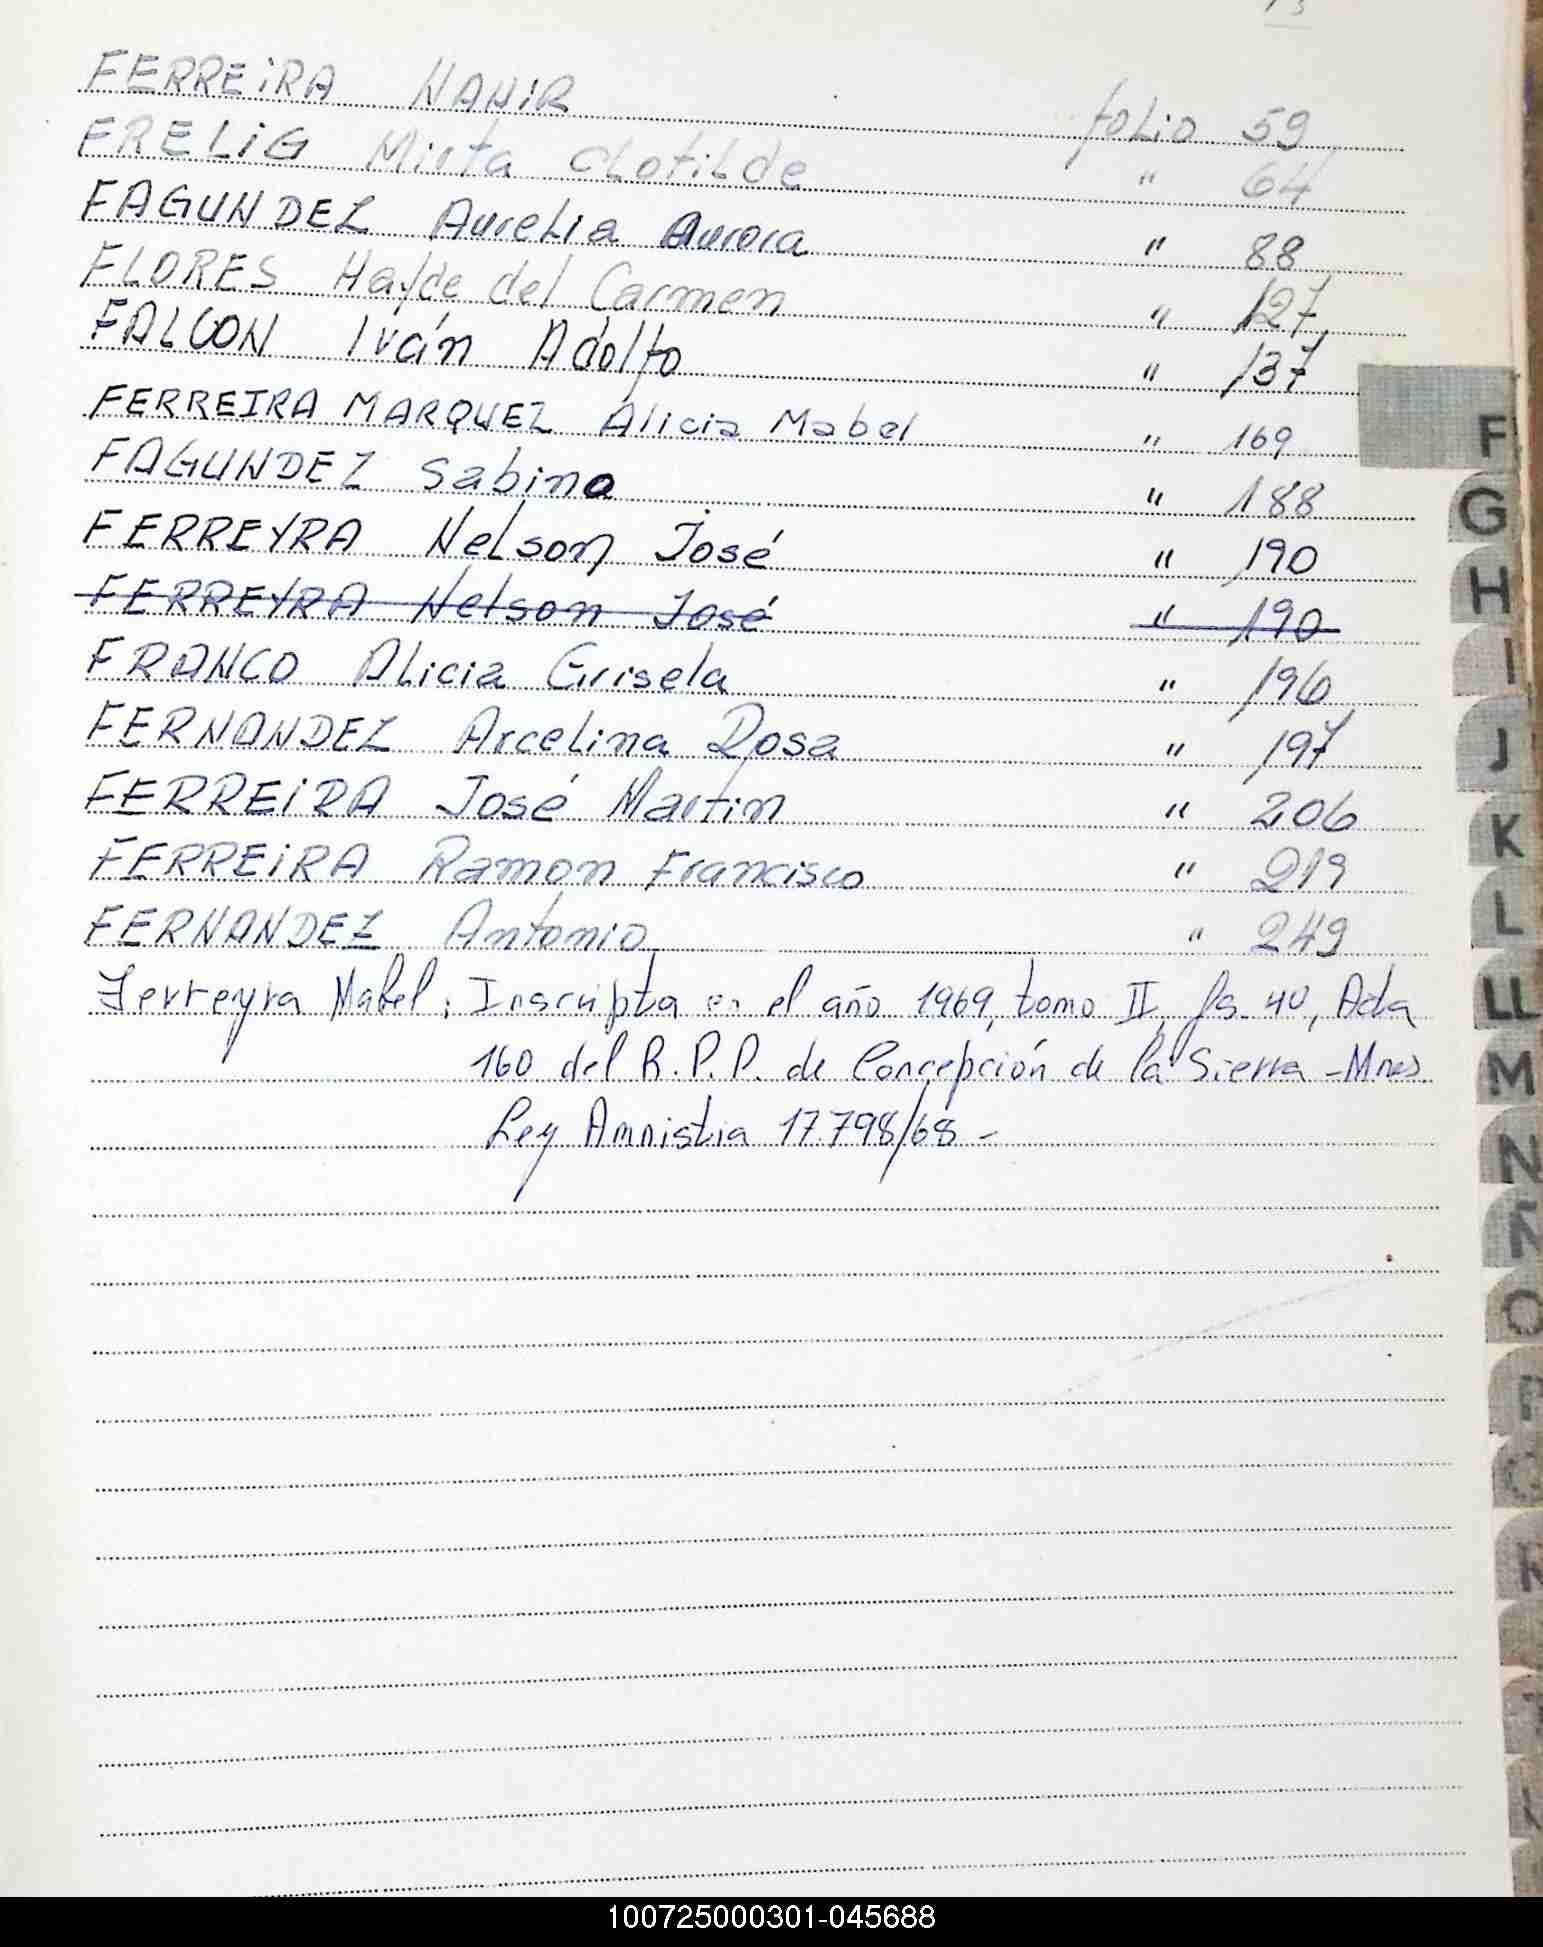 FERREiRA NAHiR folio 59
FRELiG Mirta Clotilde " 64
FAGUNDEZ Aurelia Aurora " 88
FLORES Hayde del Carmen " 127
FALCON Iván Adolfo " 137
FERREIRA MARQUEZ Alicia Mabel " 169
FAGUNDEZ Sabino " 188
FERREYRA Nelson José " 190
FERREYRA Nelson José " 190
FRANCO Alicia Grisela " 196
FERNANDEZ Arcelina Rosa " 197
FERREiRA José Martin " 206
FERREiRA Ramon Francisco " 219
FERNANDEZ Antonio " 249
Ferreyra Mabel: Inscripta en el año 1969, tomo II, fs. 40, Acta
160 del R.P.P. de Concepción de la Sierra - Mnes.
Ley Amnistia 17.798/68 -
F
G
H
I
J
K
L
LL
M
N
Ñ
O
P
Q
R
100725000301-045688